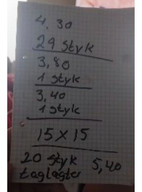 4,30
29 styk
3,80
1 styk
3,40
1 styk
15 x 15
20 styk 5,40
taglægter